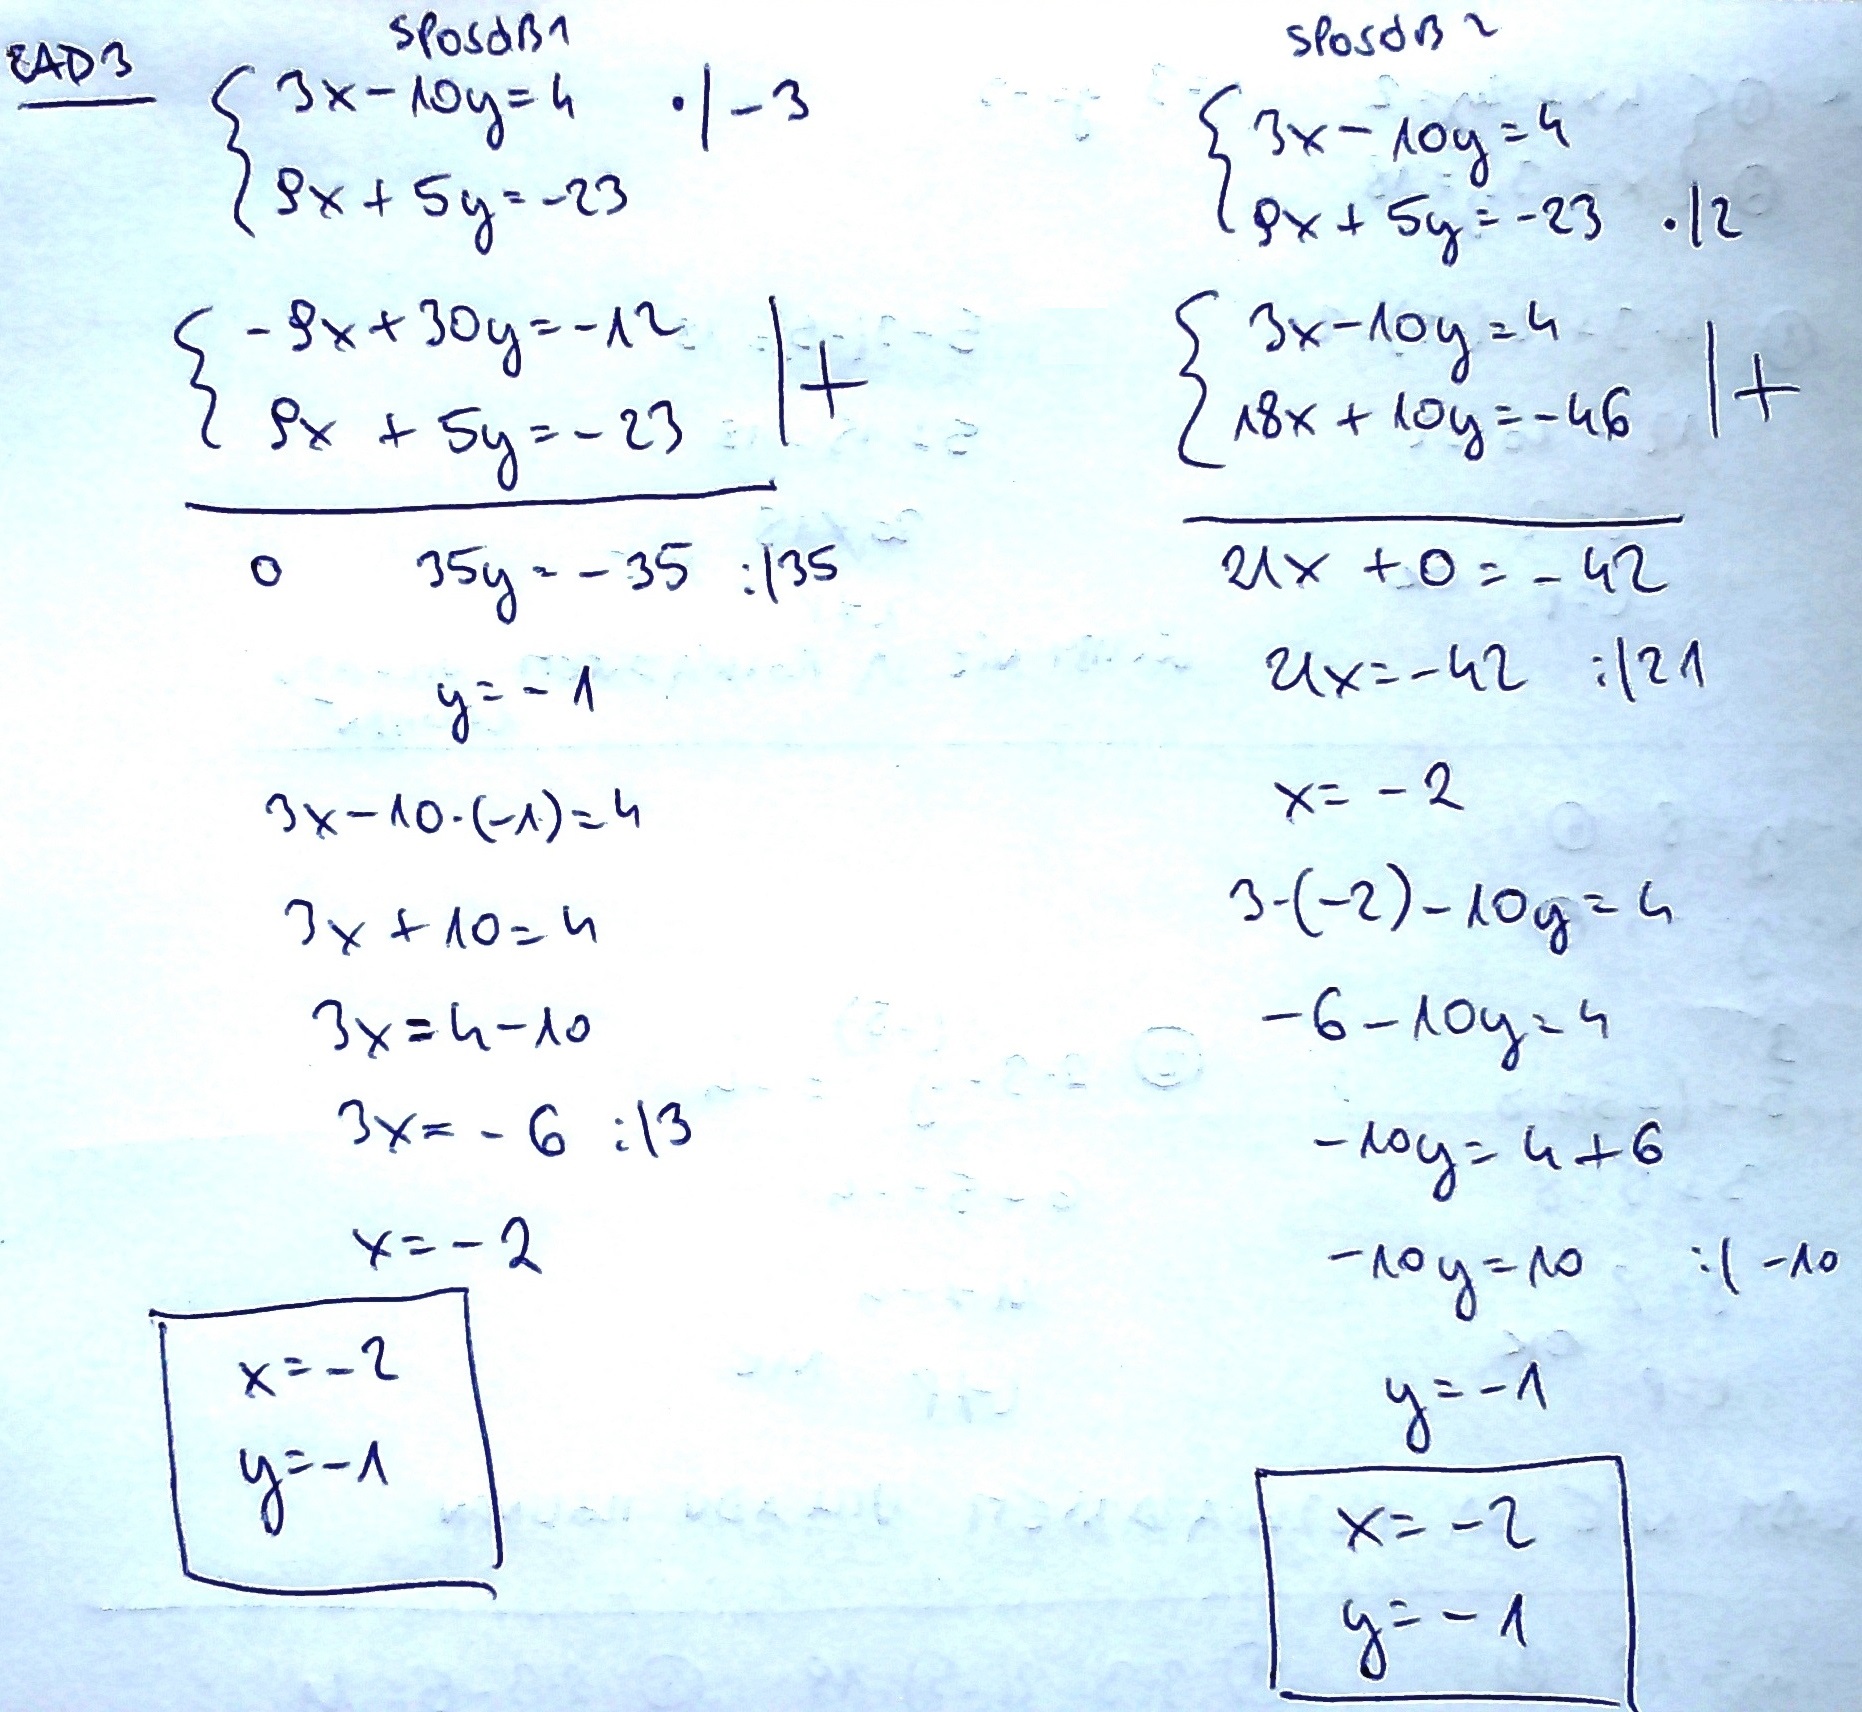 ZAD3
SPOSÓB1
{ 3x-10y=4 ·|-3
9x+5y=-23
{ -9x+30y=-12 |+
9x+5y=-23
0 35y=-35 :|35
y=-1
3x-10·(-1)=4
3x+10=4
3x=4-10
3x=-6 :|3
x=-2
x=-2
y=-1
SPOSÓB 2
{ 3x-10y=4
9x+5y=-23 ·|2
{ 3x-10y=4 |+
18x+10y=-46
21x+0=-42
21x=-42 :|21
x=-2
3·(-2)-10y=4
-6-10y=4
-10y=4+6
-10y=10 :|-10
y=-1
x=-2
y=-1